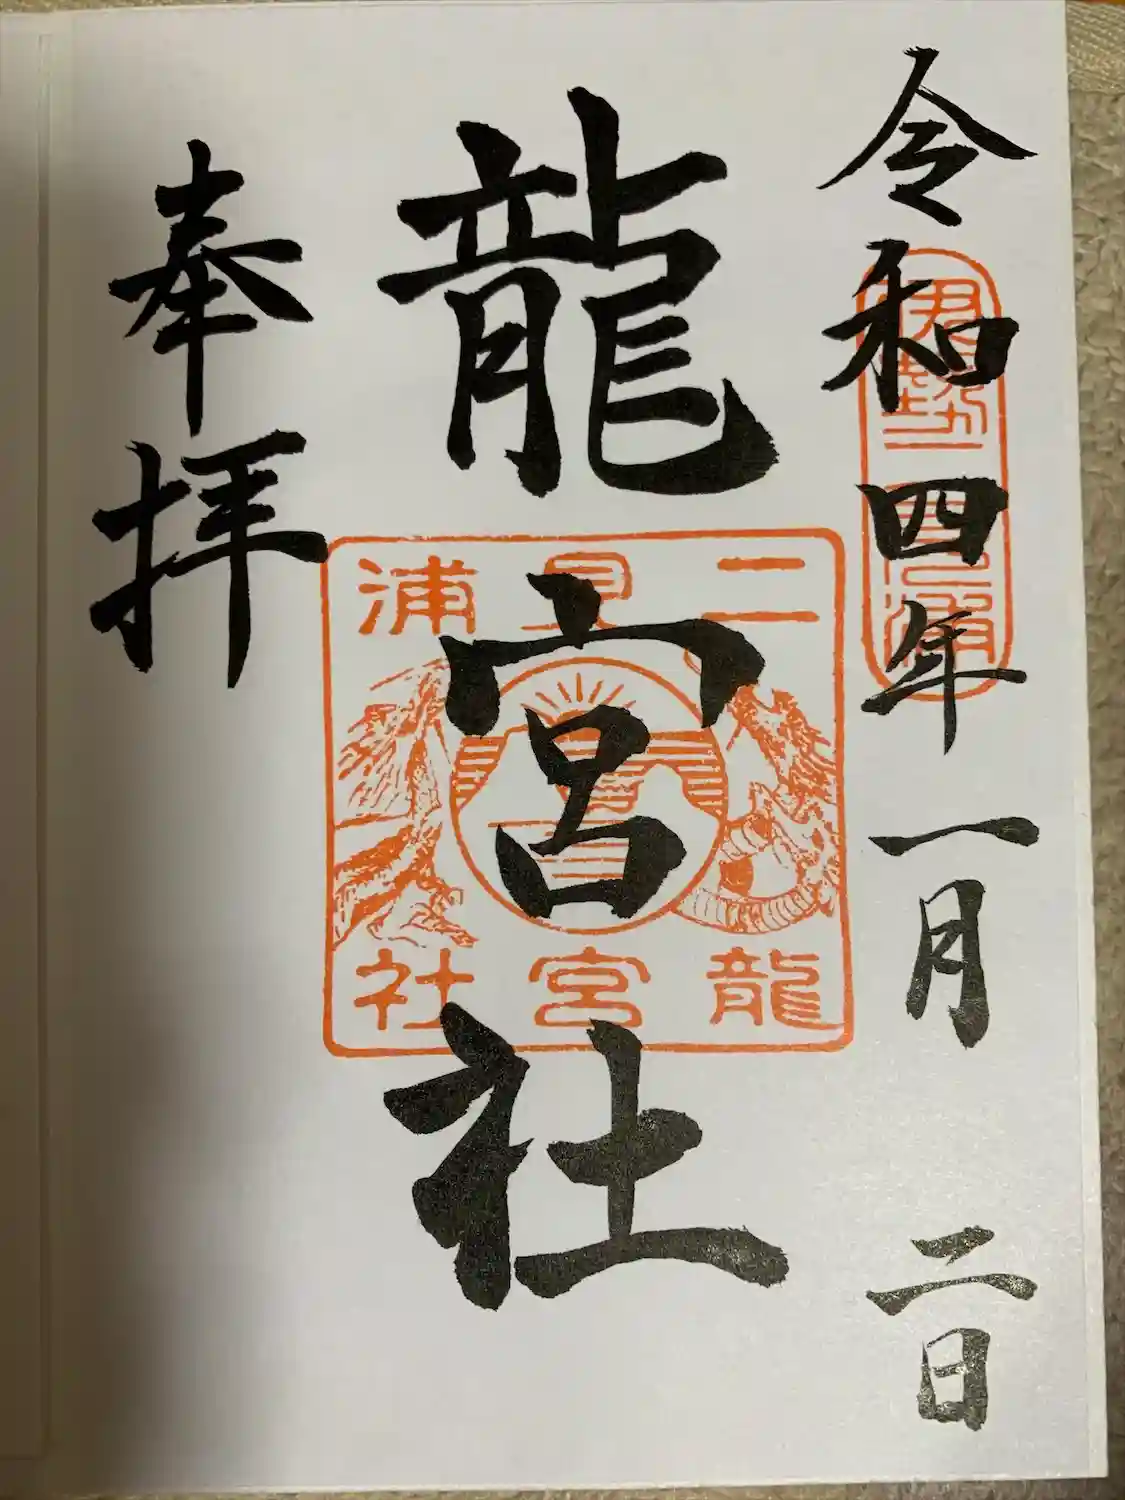 令和四年一月二日
伊勢二見浦
龍宮社
二見浦
龍宮社
奉拝